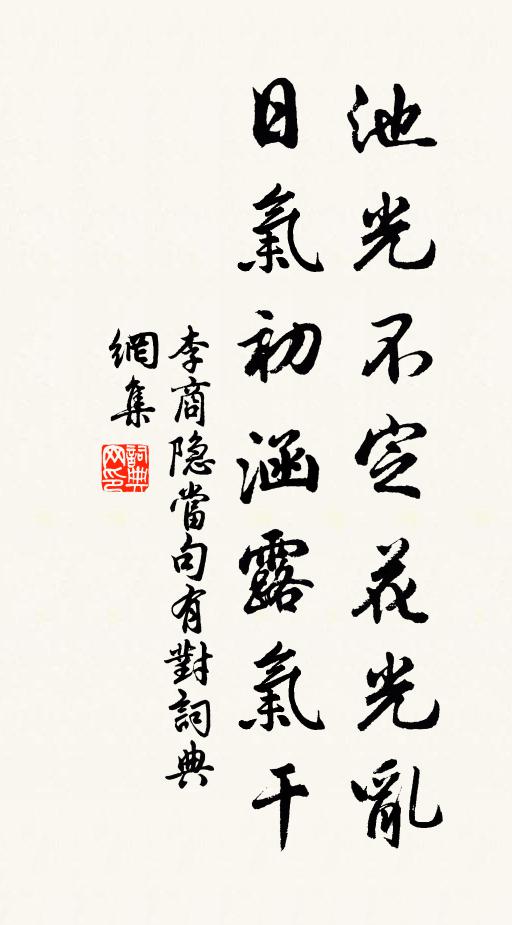 池光不定花光亂
日氣初涵露氣干
李商隐當句有對詞典
網集
詞典网印